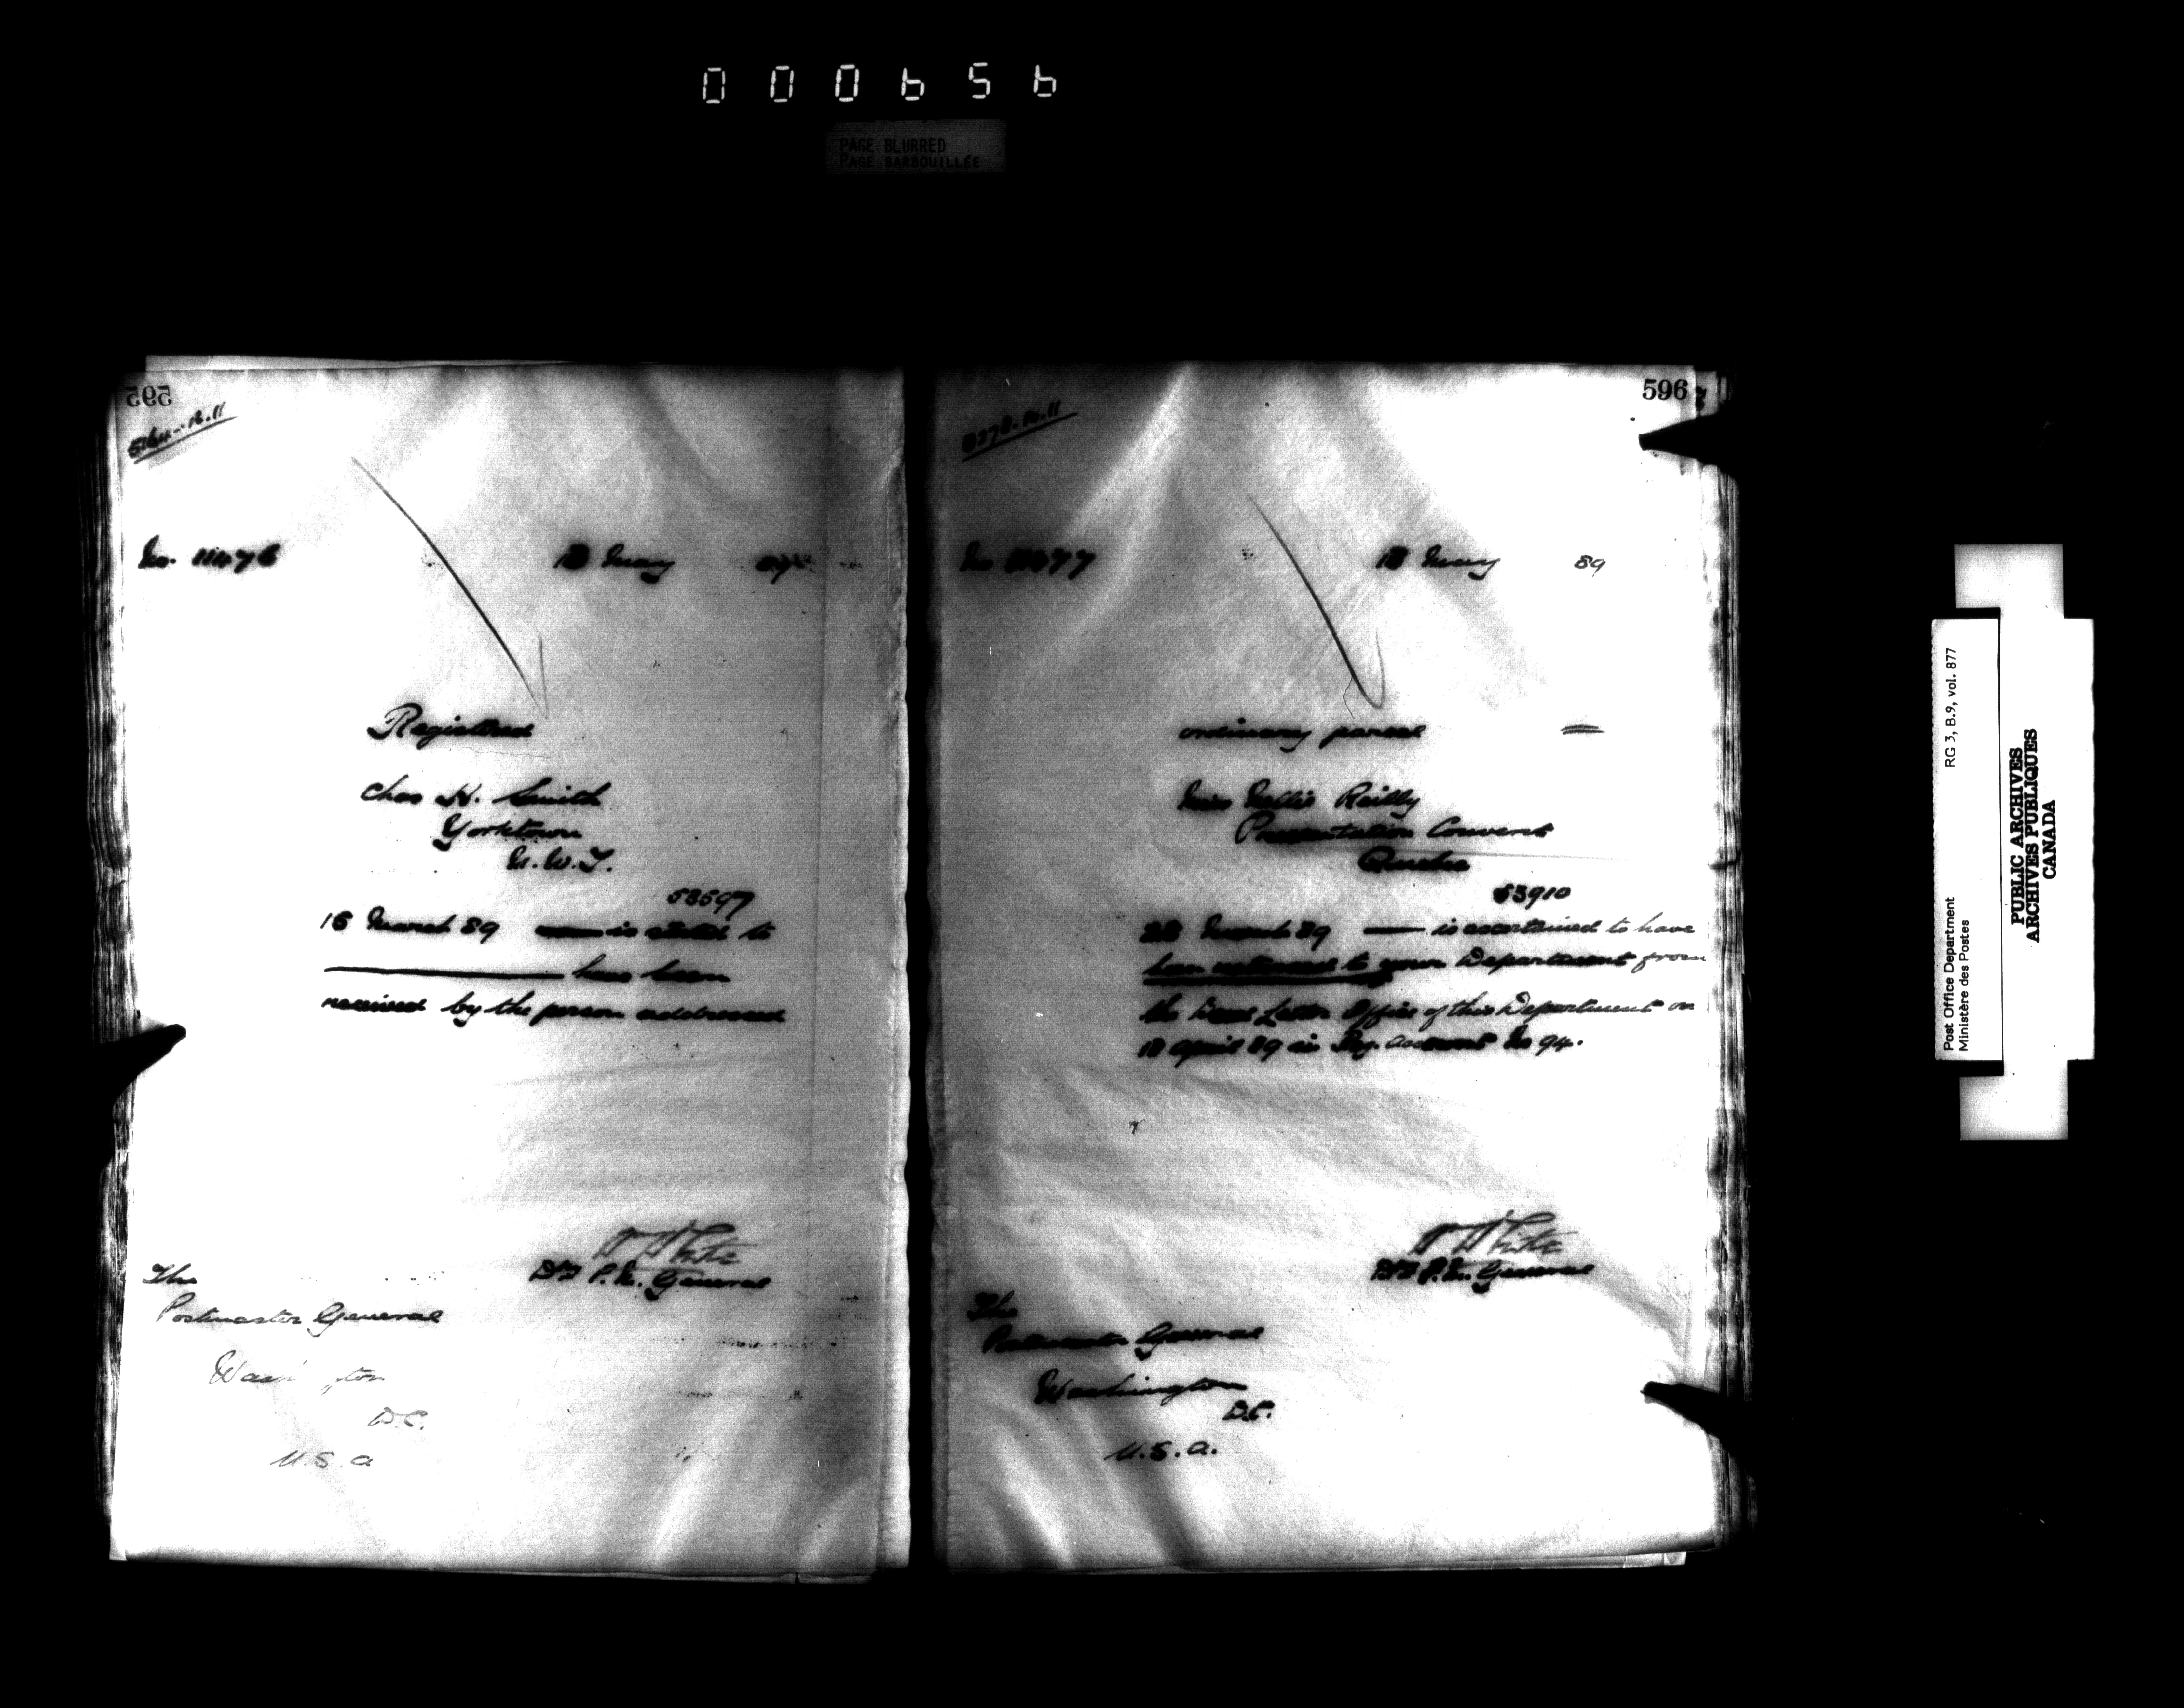 000656
PAGE BLURRED
PAGE BARBOUILLÉE
595
No. 11476 18 May 89
Registered
Chas H. Smith
Yorktown
N.W.T.
53597
16 March 89 — is stated to
— have been
received by the person addressed
W H White
Dy P.M. General
The
Postmaster General
Washington
D.C.
U.S.a
596
No 11477 18 May 89
ordinary parcel =
Miss Nellie Reilly
Presentation Convent
Quebec
53910
March 89 — is ascertained to have
been returned to your Department from
the Dead Letter Office of this Department on
18 April 89 in Reg. account No 94.
W H White
Dy P.M. General
The
Postmaster General
Washington
D.C.
U.S.a.
Post Office Department
Ministère des Postes
RG 3, B.9, vol. 877
PUBLIC ARCHIVES
ARCHIVES PUBLIQUES
CANADA